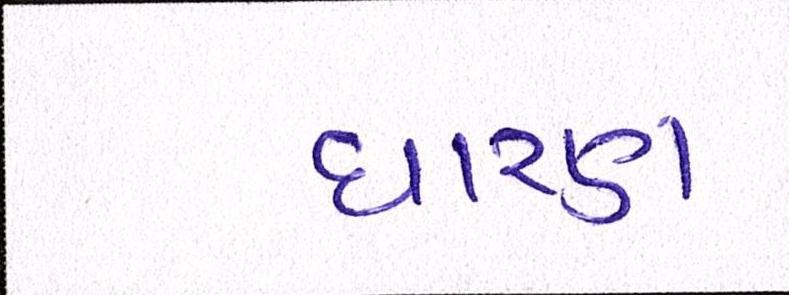 ધારણ